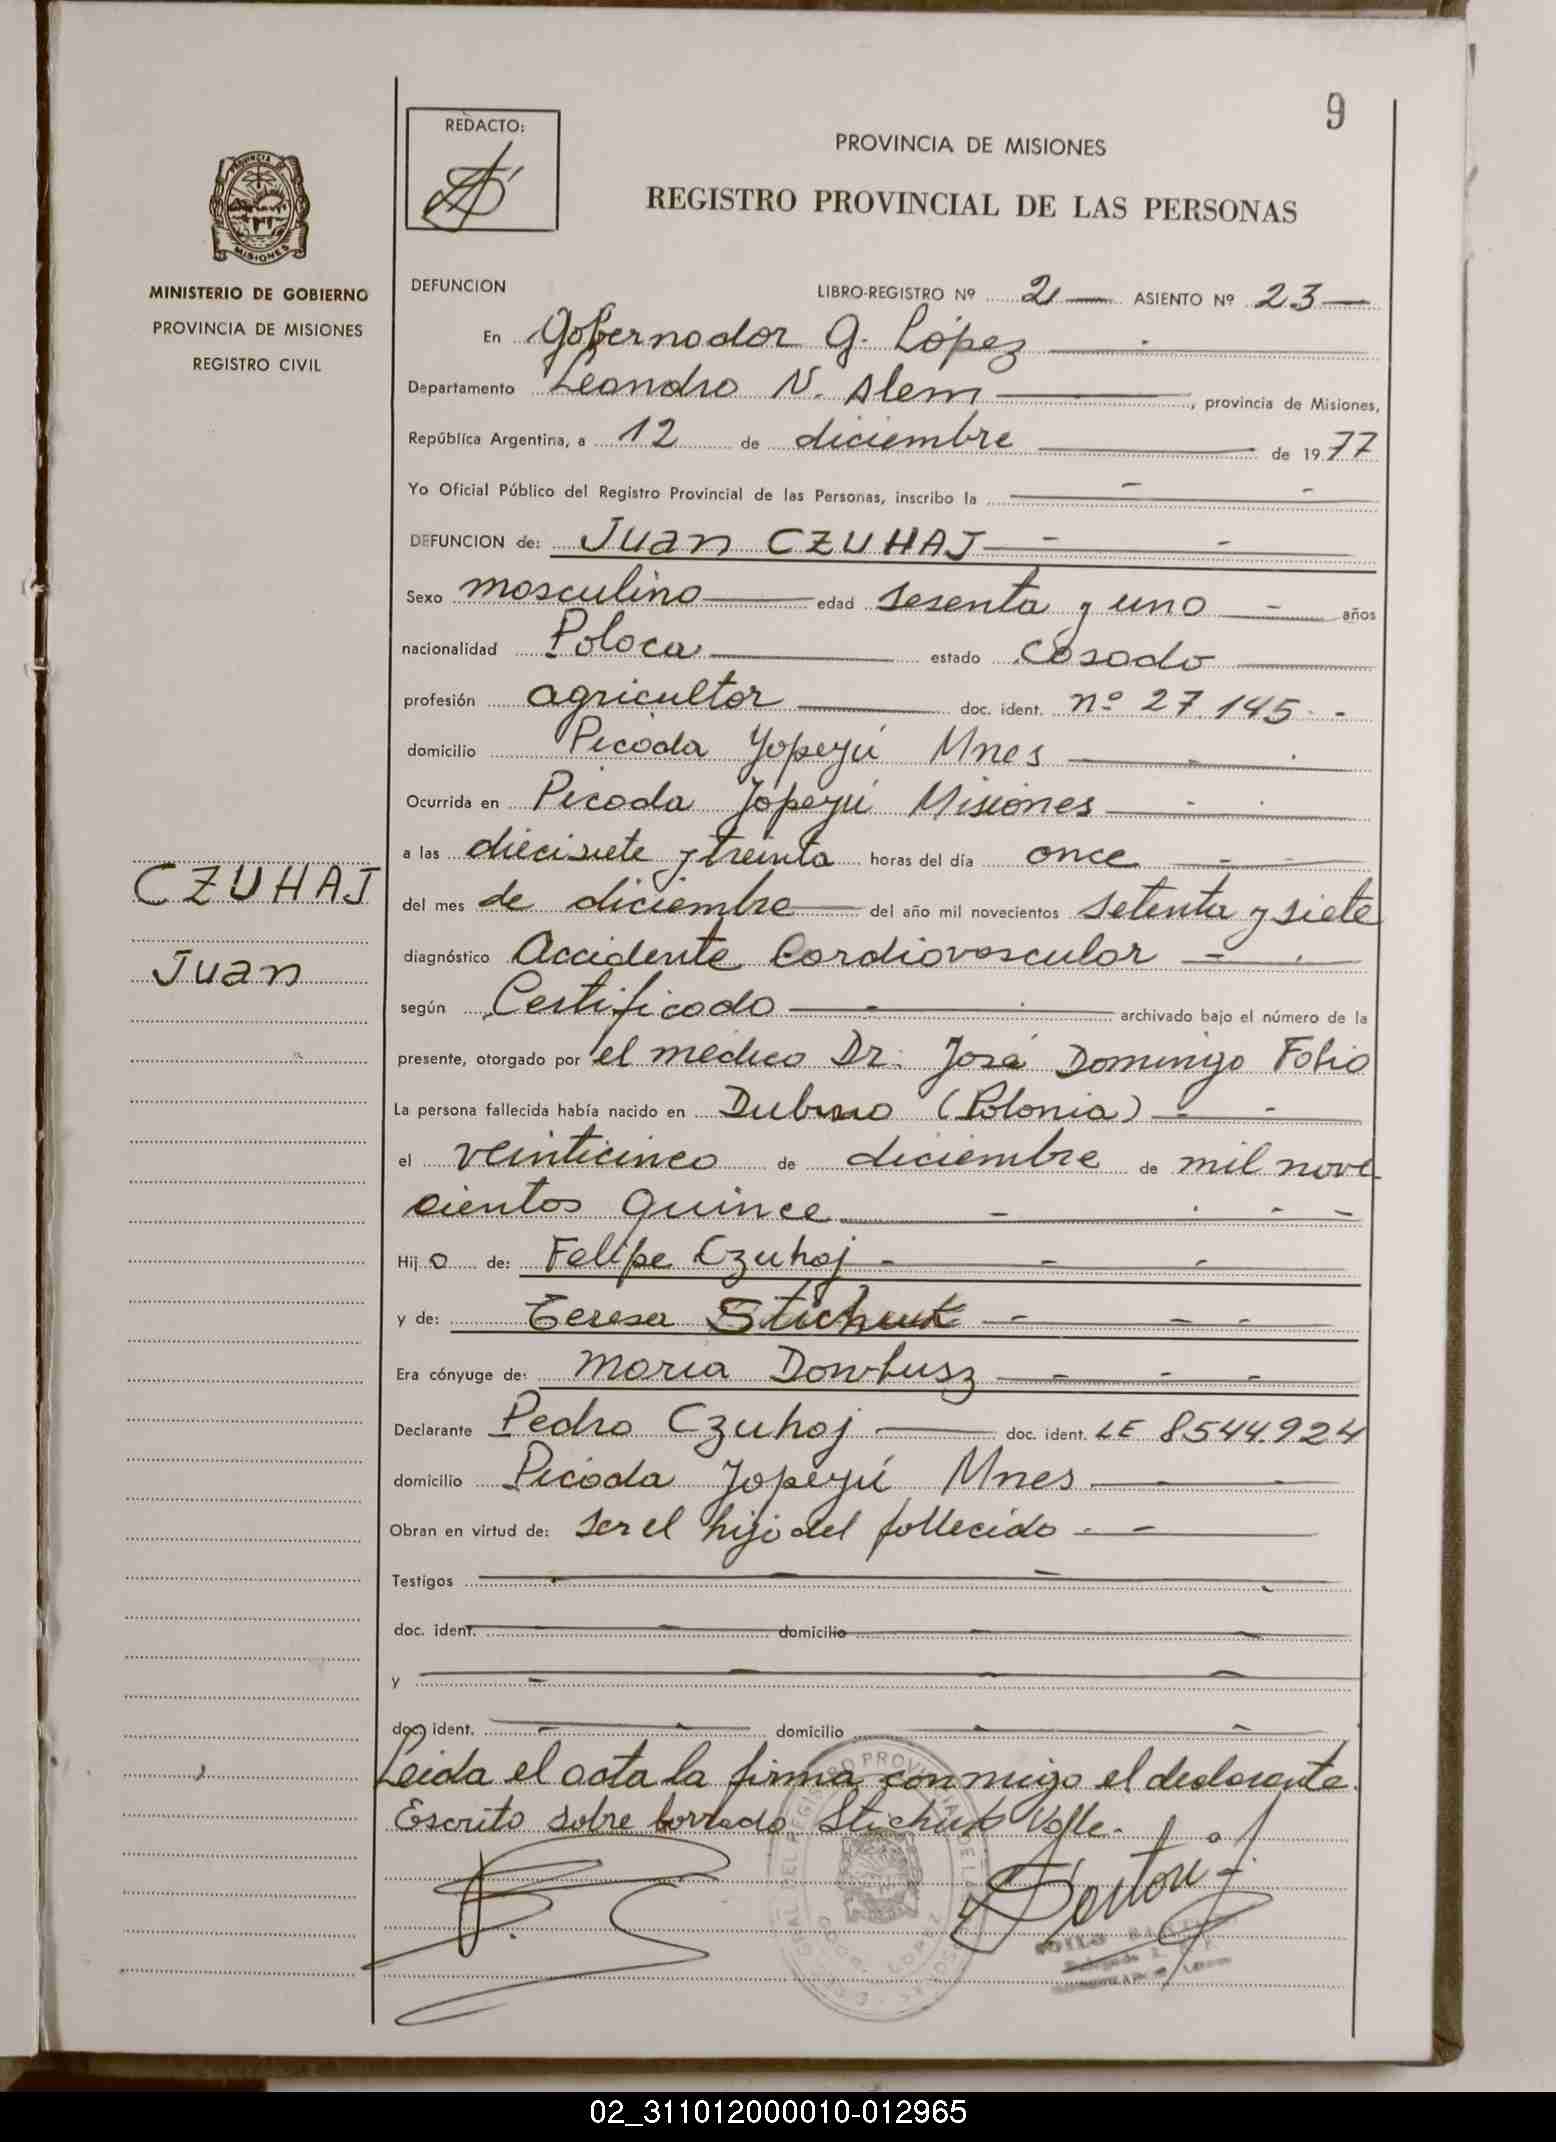 9
REDACTO:
PROVINCIA DE MISIONES
REGISTRO PROVINCIAL DE LAS PERSONAS
PROVINCIA DE
MISIONES
MINISTERIO DE GOBIERNO
PROVINCIA DE MISIONES
REGISTRO CIVIL
DEFUNCION LIBRO-REGISTRO Nº 2 ASIENTO Nº 23
En Gobernador G. López
Departamento Leandro N. Alem, provincia de Misiones,
República Argentina, a 12 de diciembre de 1977
Yo Oficial Público del Registro Provincial de las Personas, inscribo la
DEFUNCION de: Juan CZUHAJ
Sexo masculino edad sesenta y uno años
nacionalidad Polaca estado Casado
profesión agricultor doc. ident. nº 27.145
domicilio Picada Yapeyú Mnes
Ocurrida en Picada Yapeyú Misiones
a las diecisiete y treinta horas del día once
CZUHAJ
del mes de diciembre del año mil novecientos setenta y siete
diagnóstico Accidente Cardiovascular
Juan
según Certificado archivado bajo el número de la
presente, otorgado por el medico Dr. José Domingo Fabio
La persona fallecida había nacido en Dubno (Polonia)
el veinticinco de diciembre de mil nove
cientos quince
Hijo de: Felipe Czuhaj
y de: Teresa Stichuk
Era cónyuge de: Maria
Declarante Pedro Czuhaj doc. ident. LE 8544.924
domicilio Picada Yapeyú Mnes
Obran en virtud de: ser el hijo del fallecido
Testigos
doc. ident. domicilio
y
doc. ident. domicilio
Leida el acta la firma conmigo el declarante.
Escrito sobre borrado Stichuk Valle.
02_311012000010-012965